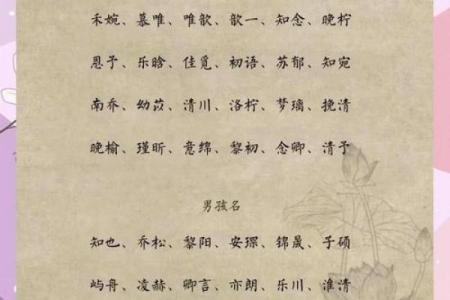 禾婉、慕唯、唯歆、歆一、知念、晚柠
恩予、乐晗、佳觅、初语、苏郁、知宛
南乔、幼苡、清川、洛柠、梦璃、挽清
晚榆、瑾昕、意绵、黎初、念卿、清予
男孩名
知也、乔松、黎阳、安琛、锦晟、子硕
屿舟、凌赫、卿言、亦朗、乐川、淮清